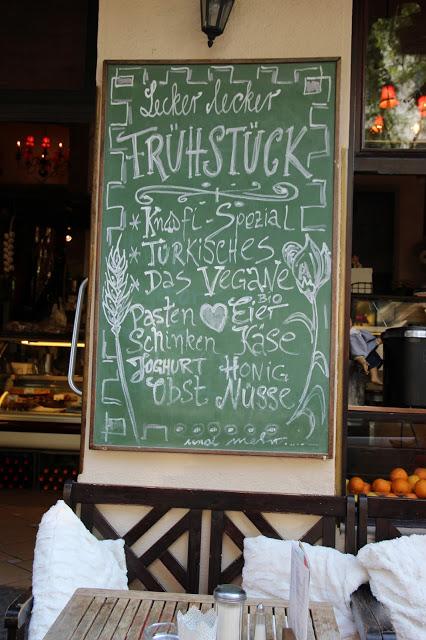 Lecker lecker
FRÜHSTÜCK
* Knofi-Spezial
* TÜRKISCHES
* DAS VEGANE
Pasten ♥ BIO Eier
Schinken Käse
JOGHURT HONIG
Obst Nüsse
und mehr....